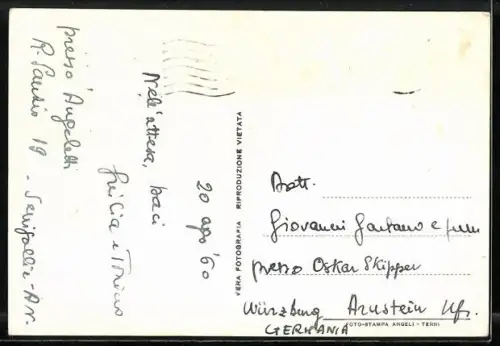 presso Angeletti
R. Sanzio 19 - Senigallia - An.
Nell'attesa, baci
Giulia e Tonino
20 ago '60
VERA FOTOGRAFIA RIPRODUZIONE VIETATA
Dott.
Giovanni Gaetano e
presso Oskar Skipper
Würzburg Arnstein Ufr.
GERMANIA
FOTO-STAMPA ANGELI - TERNI